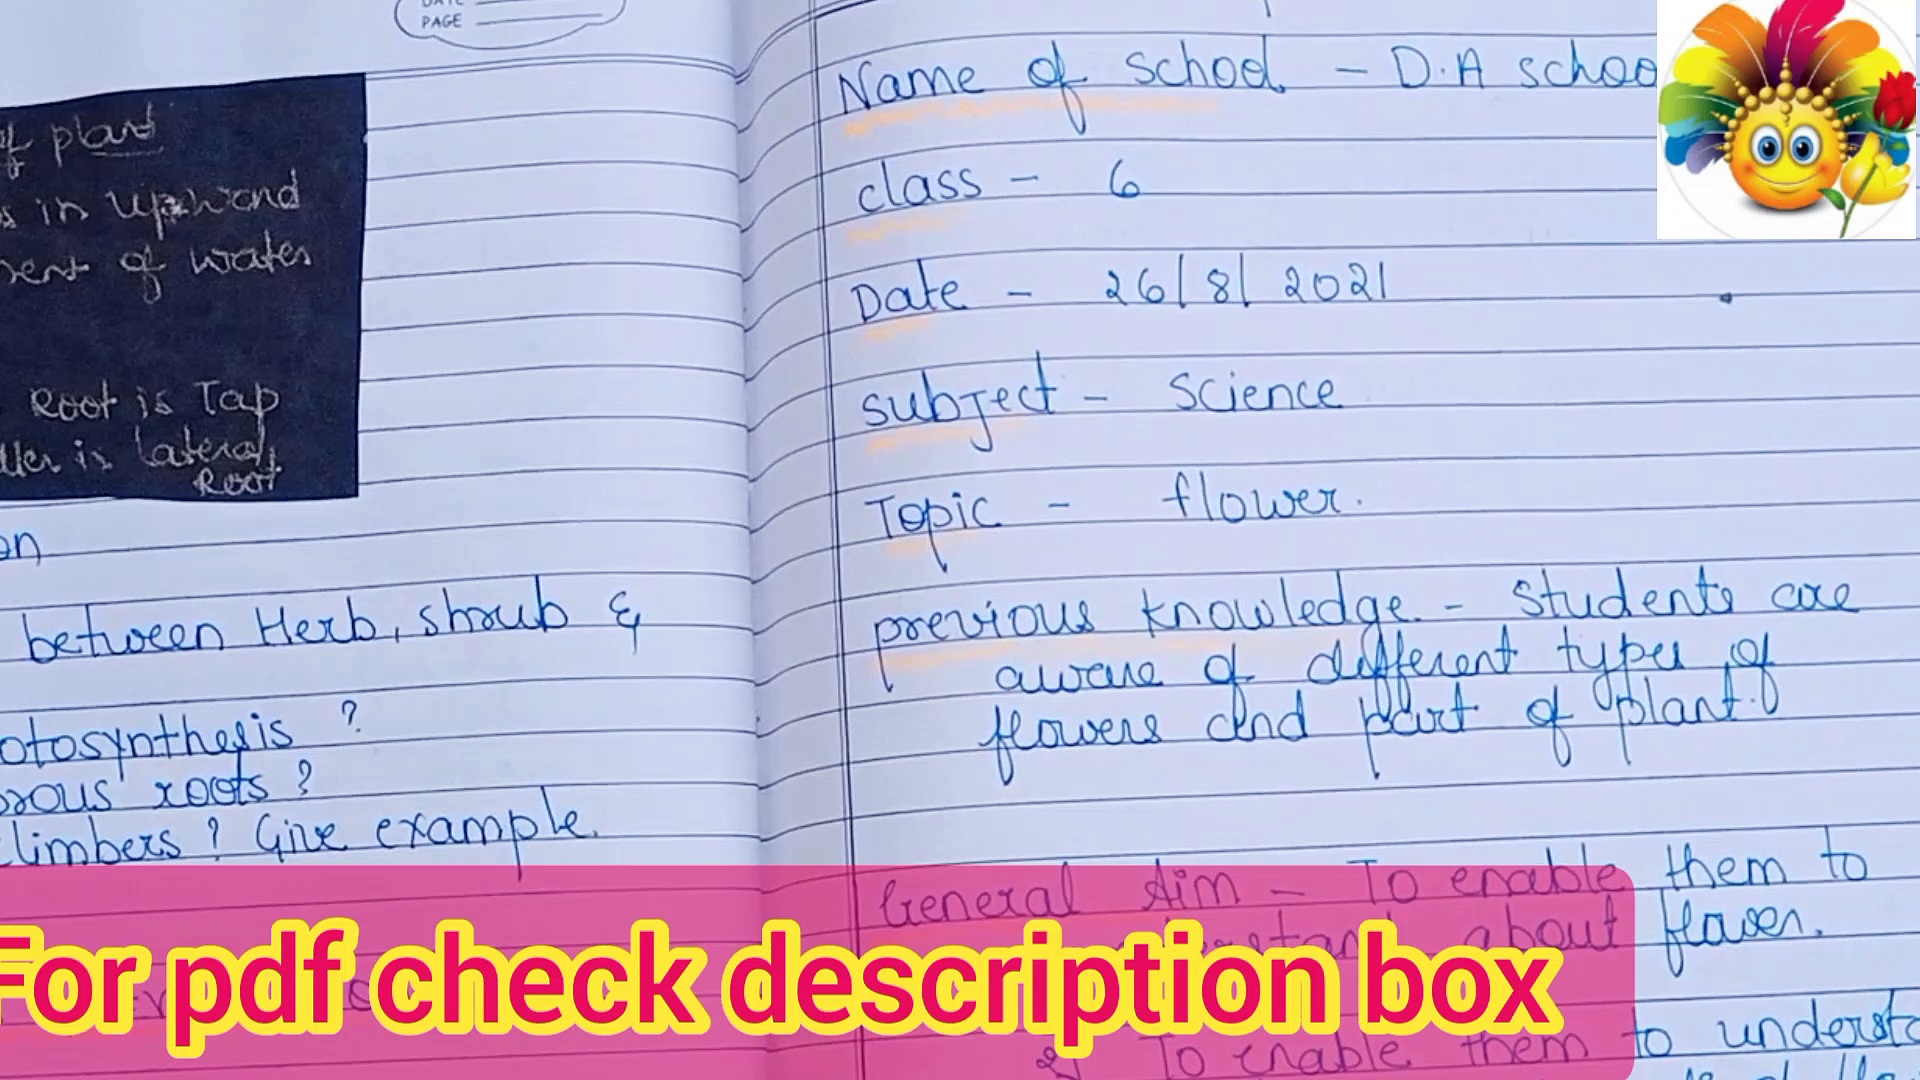 DATE
PAGE
of plant
s in upward
ment of water
Root is Tap
ller is lateral
Root
on
between Herb, shrub &
otosynthesis ?
brous roots ?
climbers ? Give example.
Name of school - D.A schoo
class - 6
Date - 26/8/2021
subject - Science
Topic - flower.
previous knowledge - students are
aware of different types of
flowers and part of plant.
General Aim - To enable them to
about flower.
For pdf check description box
2) To enable them to understa